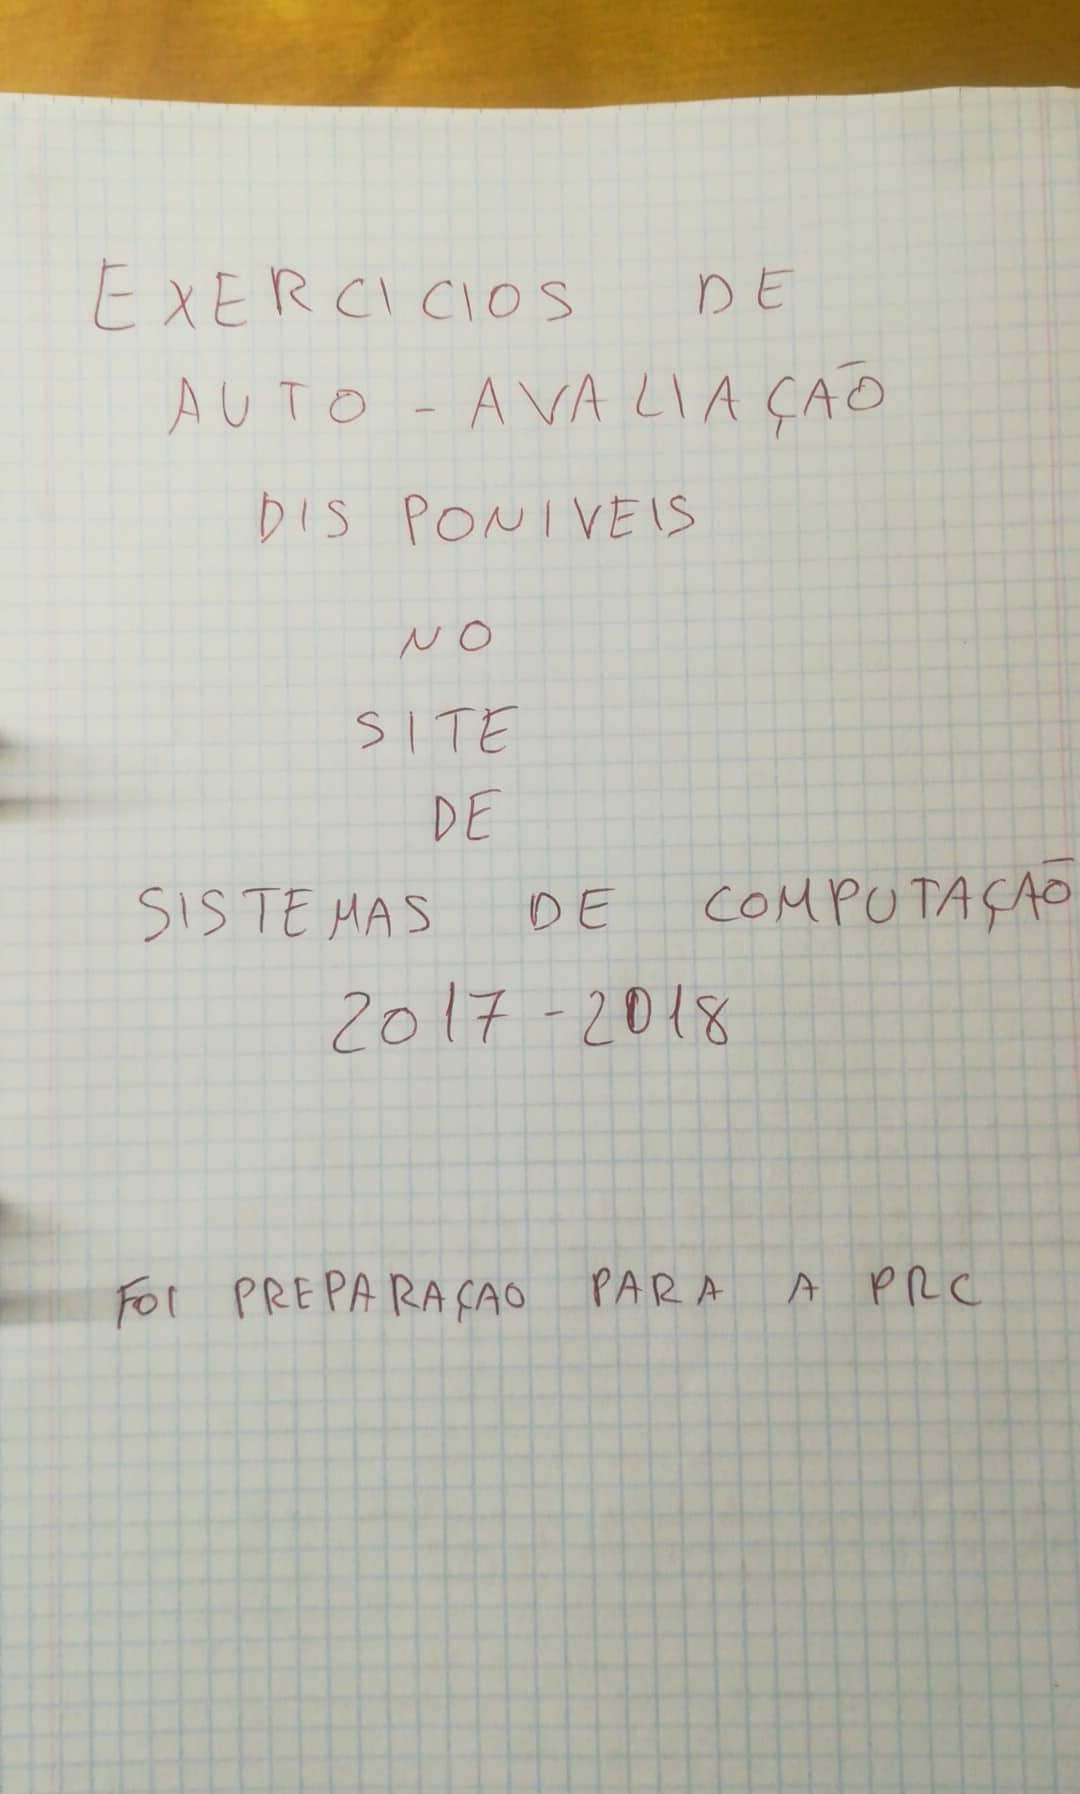 EXERCICIOS DE
AUTO-AVALIAÇÃO
DISPONIVEIS
NO
SITE
DE
SISTEMAS DE COMPUTAÇÃO
2017-2018
FOI PREPARAÇAO PARA A PRC